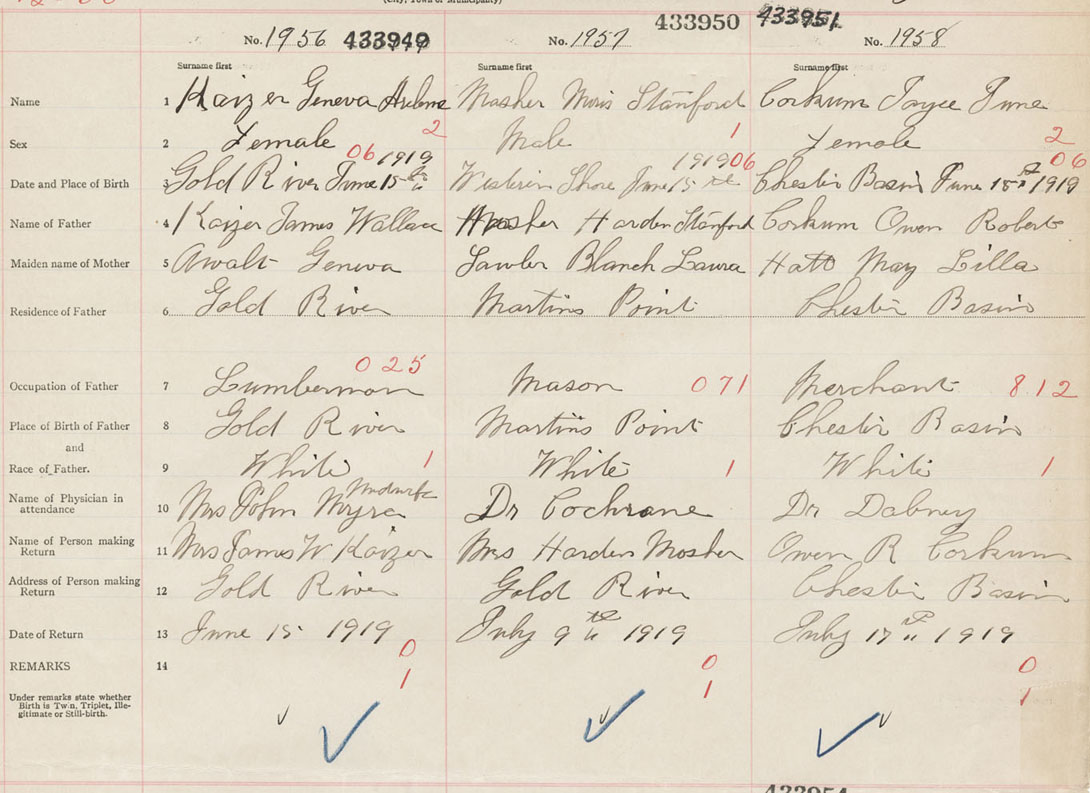 (City, Town or Municipality)
No. 1956 433949 No. 1957 433950 433951 No. 1958
Surname first Surname first Surname first
Name 1 Kaizer Geneva Mosher Stanford Corkum Joyce June
Sex 2 Female 2 Male 1 Female 2
06 1919 1919 06 06
Date and Place of Birth 3 Gold River June 15 Western Shore June 15 Chester Basin June 15 1919
Name of Father 4 Kaizer James Wallace Mosher Harden Stanford Corkum Owen Robert
Maiden name of Mother 5 Awalt Geneva Lawler Blanch Laura Hatt May Lilla
Residence of Father 6 Gold River Martins Point Chester Basin
025
Occupation of Father 7 Lumberman Mason 071 Merchant 812
Place of Birth of Father 8 Gold River Martins Point Chester Basin
and
Race of Father. 9 White 1 White 1 White 1
Name of Physician in attendance 10 Mrs John Myra Midwife Dr Cochrane Dr Dabney
Name of Person making Return 11 Mrs James W Kaizer Mrs Harden Mosher Owen R Corkum
Address of Person making Return 12 Gold River Gold River Chester Basin
Date of Return 13 June 15 1919 July 9th 1919 July 17th 1919
0 0 0
REMARKS 14
1 1 1
Under remarks state whether
Birth is Twin, Triplet, Ille-
gitimate or Still-birth.
433954